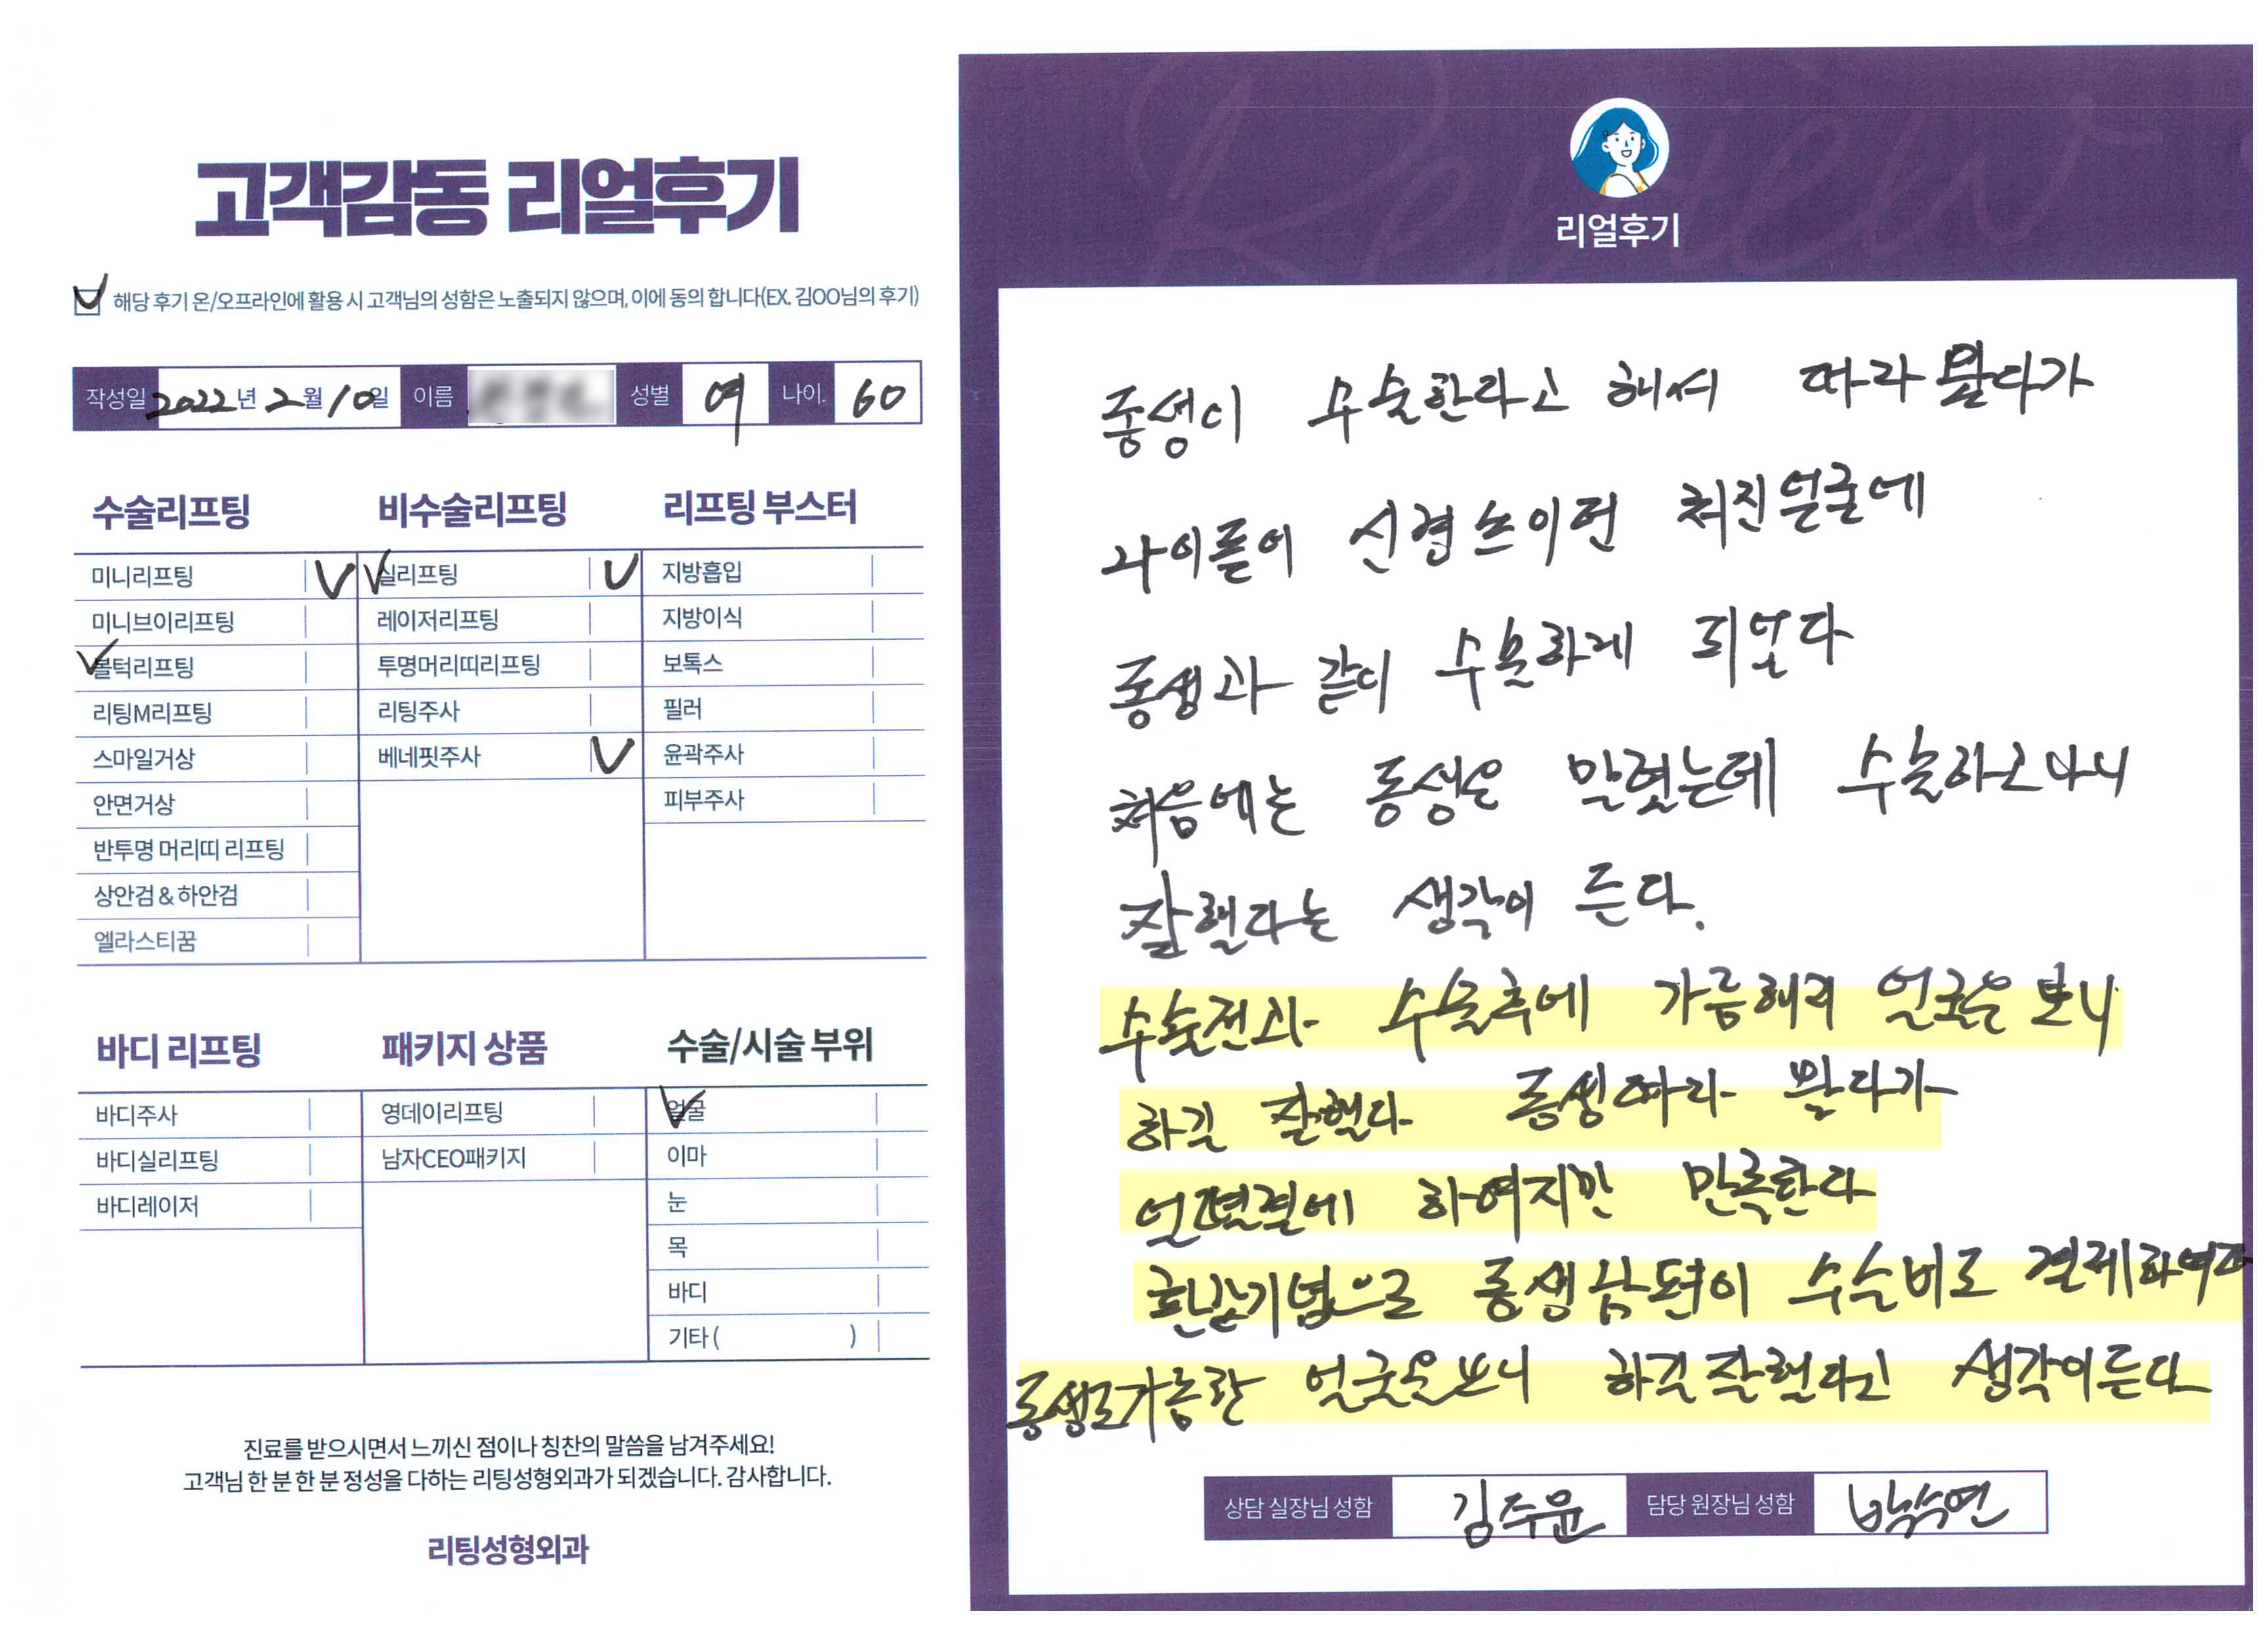 고객감동 리얼후기
해당 후기 온/오프라인에 활용 시 고객님의 성함은 노출되지 않으며, 이에 동의 합니다(EX. 김OO님의 후기)
작성일 2022년 2월 10일 이름 성별 여 나이. 60
수술리프팅
미니리프팅
미니브이리프팅
볼턱리프팅
리팅M리프팅
스마일거상
안면거상
반투명 머리띠 리프팅
상안검&하안검
엘라스티꿈
비수술리프팅
실리프팅
레이저리프팅
투명머리띠리프팅
리팅주사
베네핏주사
리프팅 부스터
지방흡입
지방이식
보톡스
필러
윤곽주사
피부주사
바디 리프팅
바디주사
바디실리프팅
바디레이저
패키지 상품
영데이리프팅
남자CEO패키지
수술/시술 부위
얼굴
이마
눈
목
바디
기타 ( )
진료를 받으시면서 느끼신 점이나 칭찬의 말씀을 남겨주세요!
고객님 한 분 한 분 정성을 다하는 리팅성형외과가 되겠습니다. 감사합니다.
리팅성형외과
Review
리얼후기
동생이 수술한라고 해서 따라 왔다가
나이들어 신경쓰이던 처진얼굴에
동생과 같이 수술하게 되었다
처음에는 동생은 말렸는데 수술하고나니
잘했다는 생각이 든다.
수술전과 수술후에 갸름해진 얼굴은 보니
하길 잘했다 동생따라 왔다가
얼떨결에 하여지만 만족한다
환갑기념으로 동생남편이 수술비도 결제하여주
동생도 갸름한 얼굴을 보니 하길 잘했다고 생각이 든다
상담 실장님 성함 김주윤 담당 원장님 성함 박수연